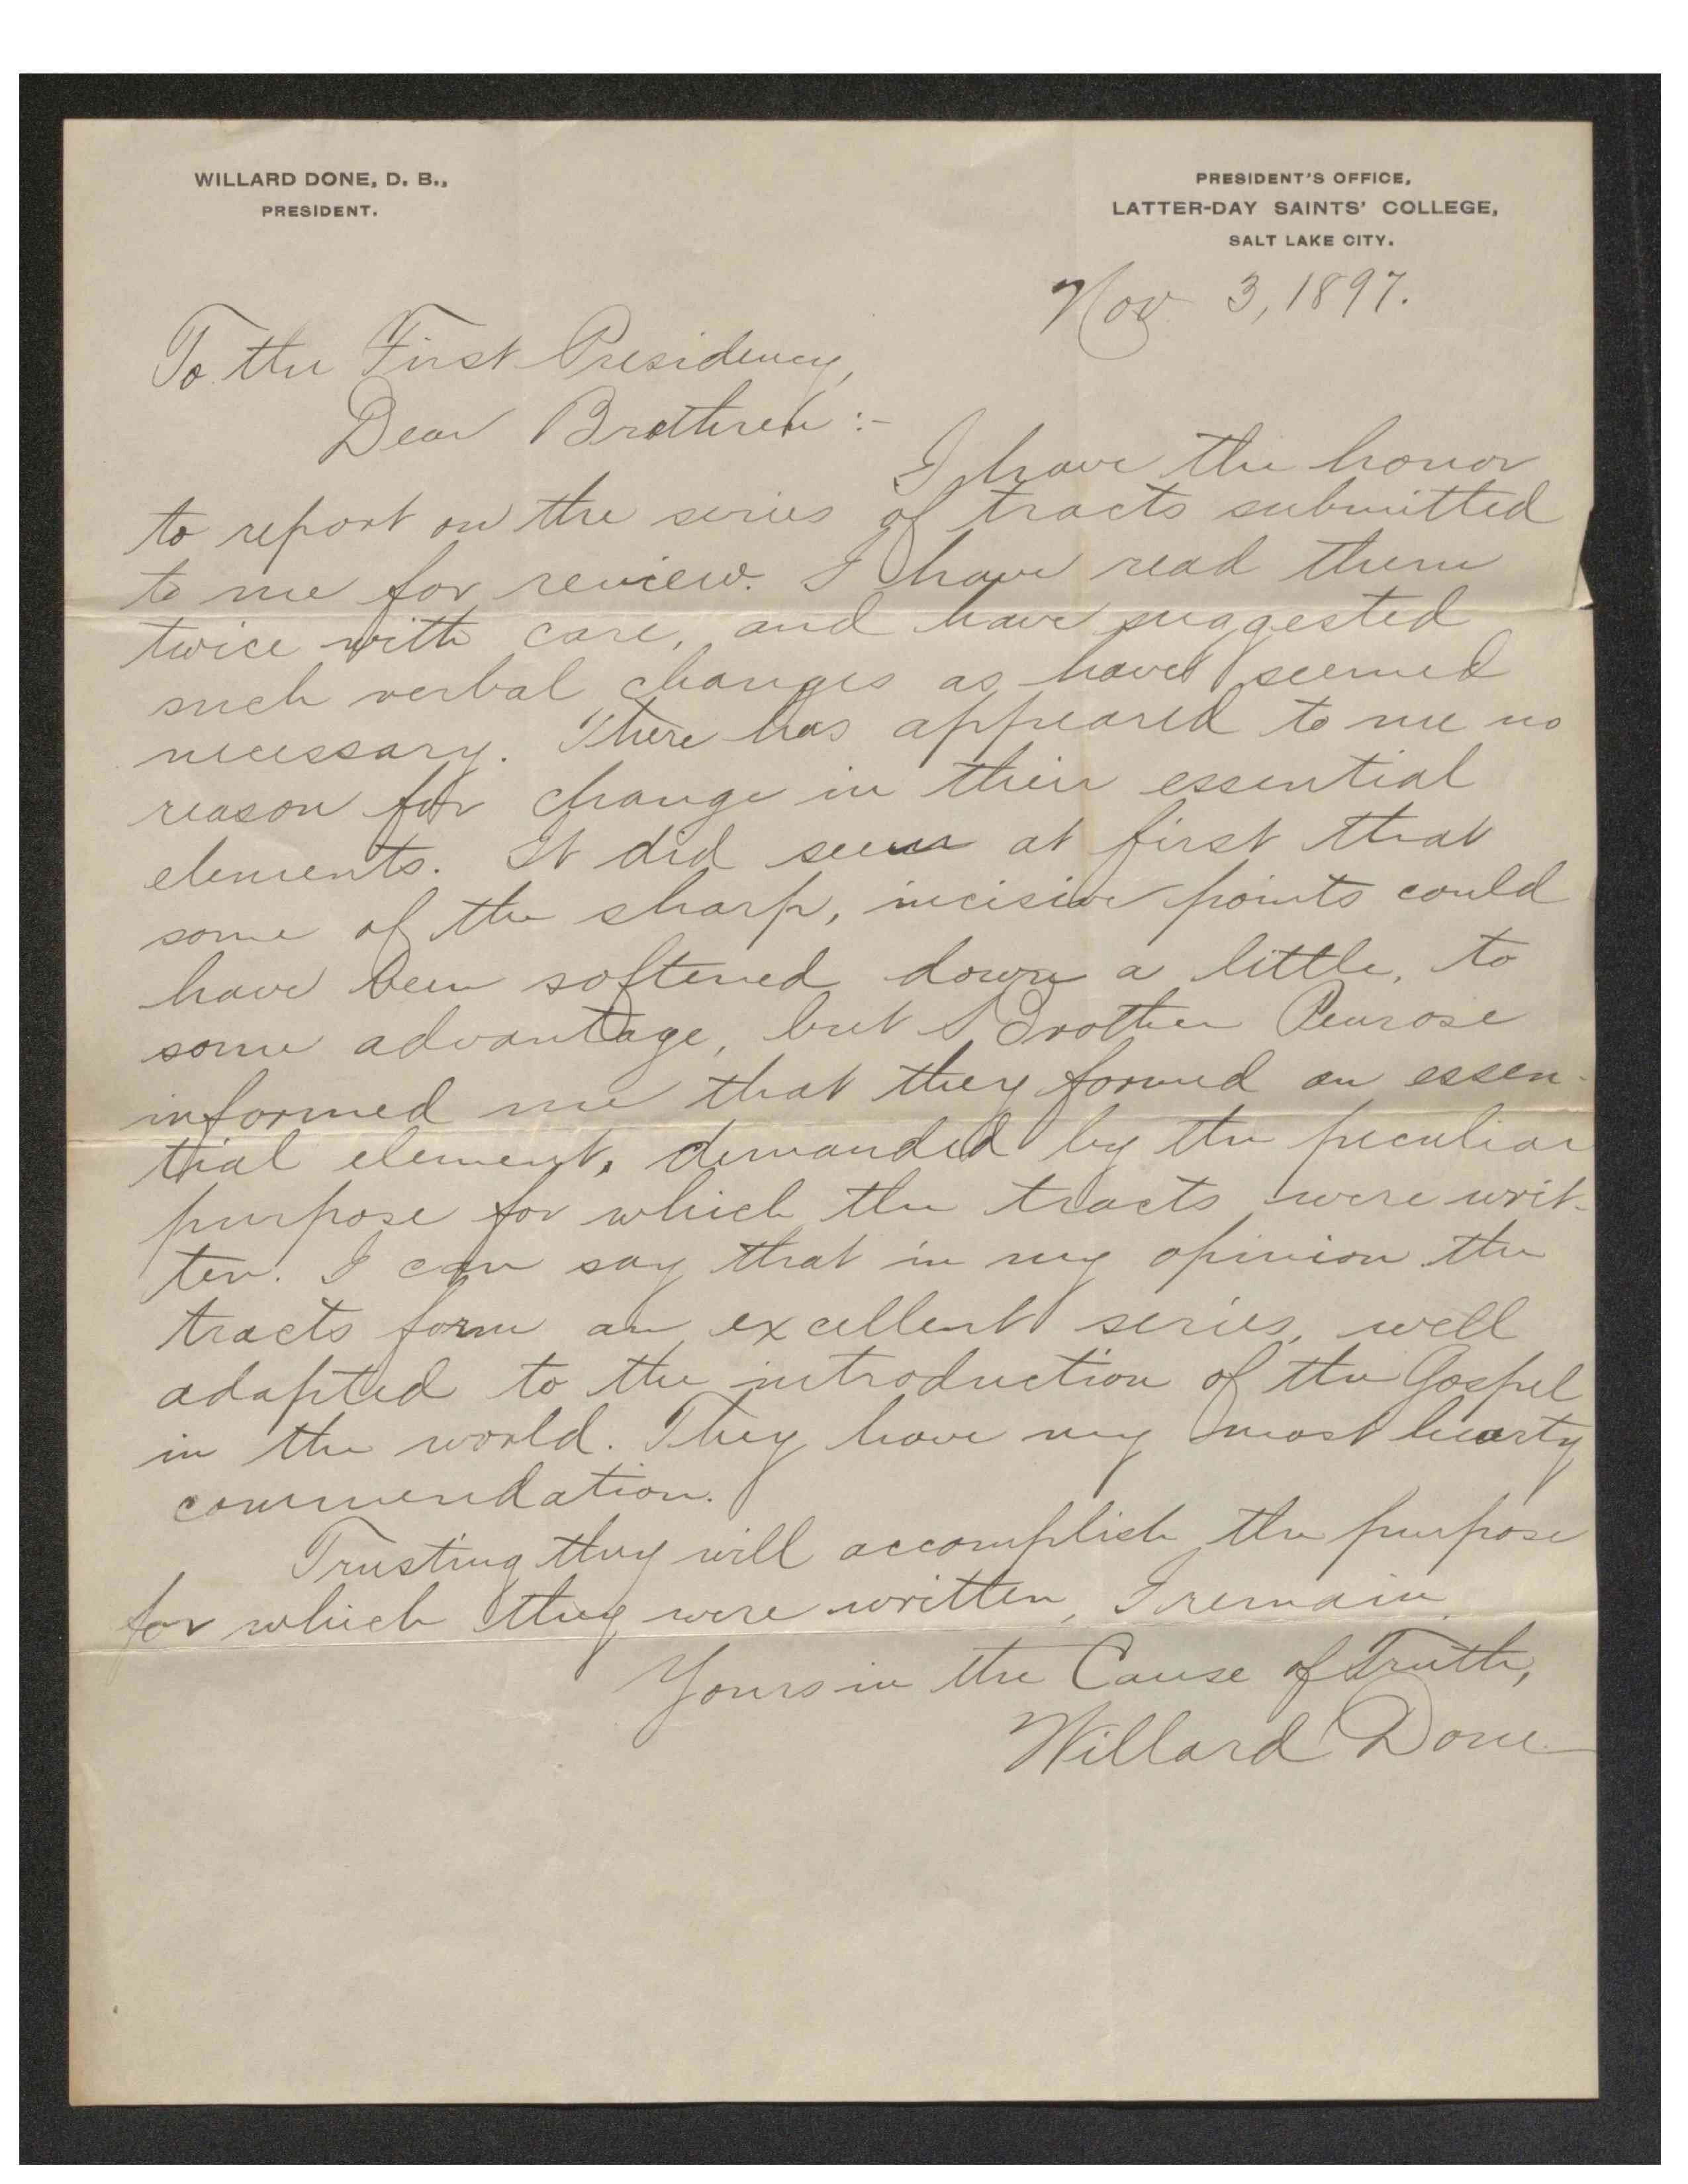 WILLARD DONE, D. B.,
PRESIDENT.
PRESIDENT'S OFFICE,
LATTER-DAY SAINTS' COLLEGE,
SALT LAKE CITY.
Nov 3, 1897.
To the First Presidency,
Dear Brethren:-
I have the honor
to report on the series of tracts submitted
to me for review. I have read them
twice with care, and have suggested
such verbal changes as have seemed
necessary. There has appeared to me no
reason for change in their essential
elements. It did seem at first that
some of the sharp, incisive points could
have been softened down a little, to
some advantage, but Brother Penrose
informed me that they formed an essen-
tial element, demanded by the peculiar
purpose for which the tracts were writ-
ten. I can say that in my opinion the
tracts form an excellent series, well
adapted to the introduction of the Gospel
in the world. They have my most hearty
commendation.
Trusting they will accomplish the purpose
for which they were written, I remain
Yours in the Cause of Truth,
Willard Done